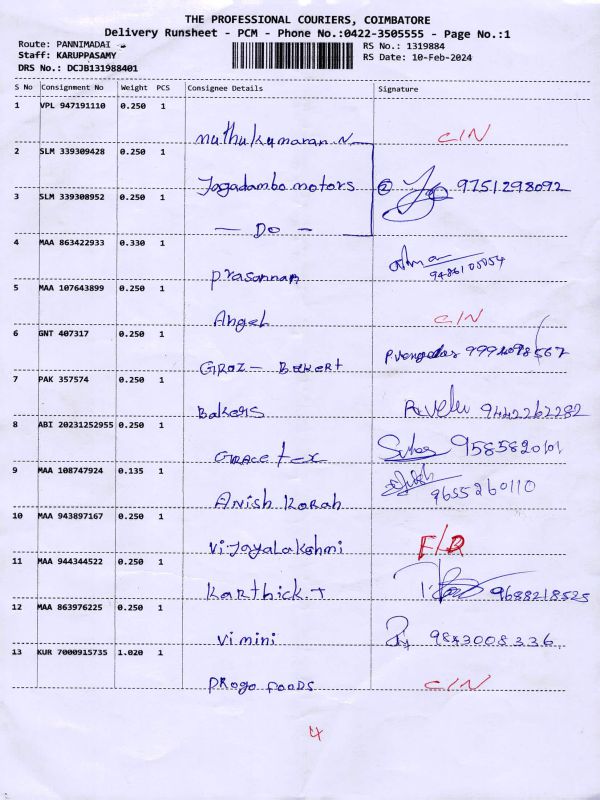 THE PROFESSIONAL COURIERS, COIMBATORE
Delivery Runsheet - PCM - Phone No.:0422-3505555 - Page No.:1
Route: PANNIMADAI
RS No.: 1319884
Staff: KARUPPASAMY
RS Date: 10-Feb-2024
DRS No.: DCJB131988401
S No Consignment No Weight PCS Consignee Details Signature
1 VPL 947191110 0.250 1
Muthukumaran N C/N
2 SLM 339309428 0.250 1
Jagadambo motors 9751298092
3 SLM 339308952 0.250 1
— Do —
4 MAA 863422933 0.330 1
Prasannan
5 MAA 107643899 0.250 1
Angel C/N
6 GNT 407317 0.250 1
GROZ - BEKERT
7 PAK 357574 0.250 1
Bakers R.Velu 9442262282
8 ABI 20231252955 0.250 1
GRACE tex 9585820101
9 MAA 108747924 0.135 1
Anish Korah 9655260110
10 MAA 943897167 0.250 1
Vijayalakshmi F/D
11 MAA 944344522 0.250 1
Karthick.T 9688218525
12 MAA 863976225 0.250 1
Vimini 9843008336
13 KUR 7000915735 1.020 1
PROGO FOODS C/N
4